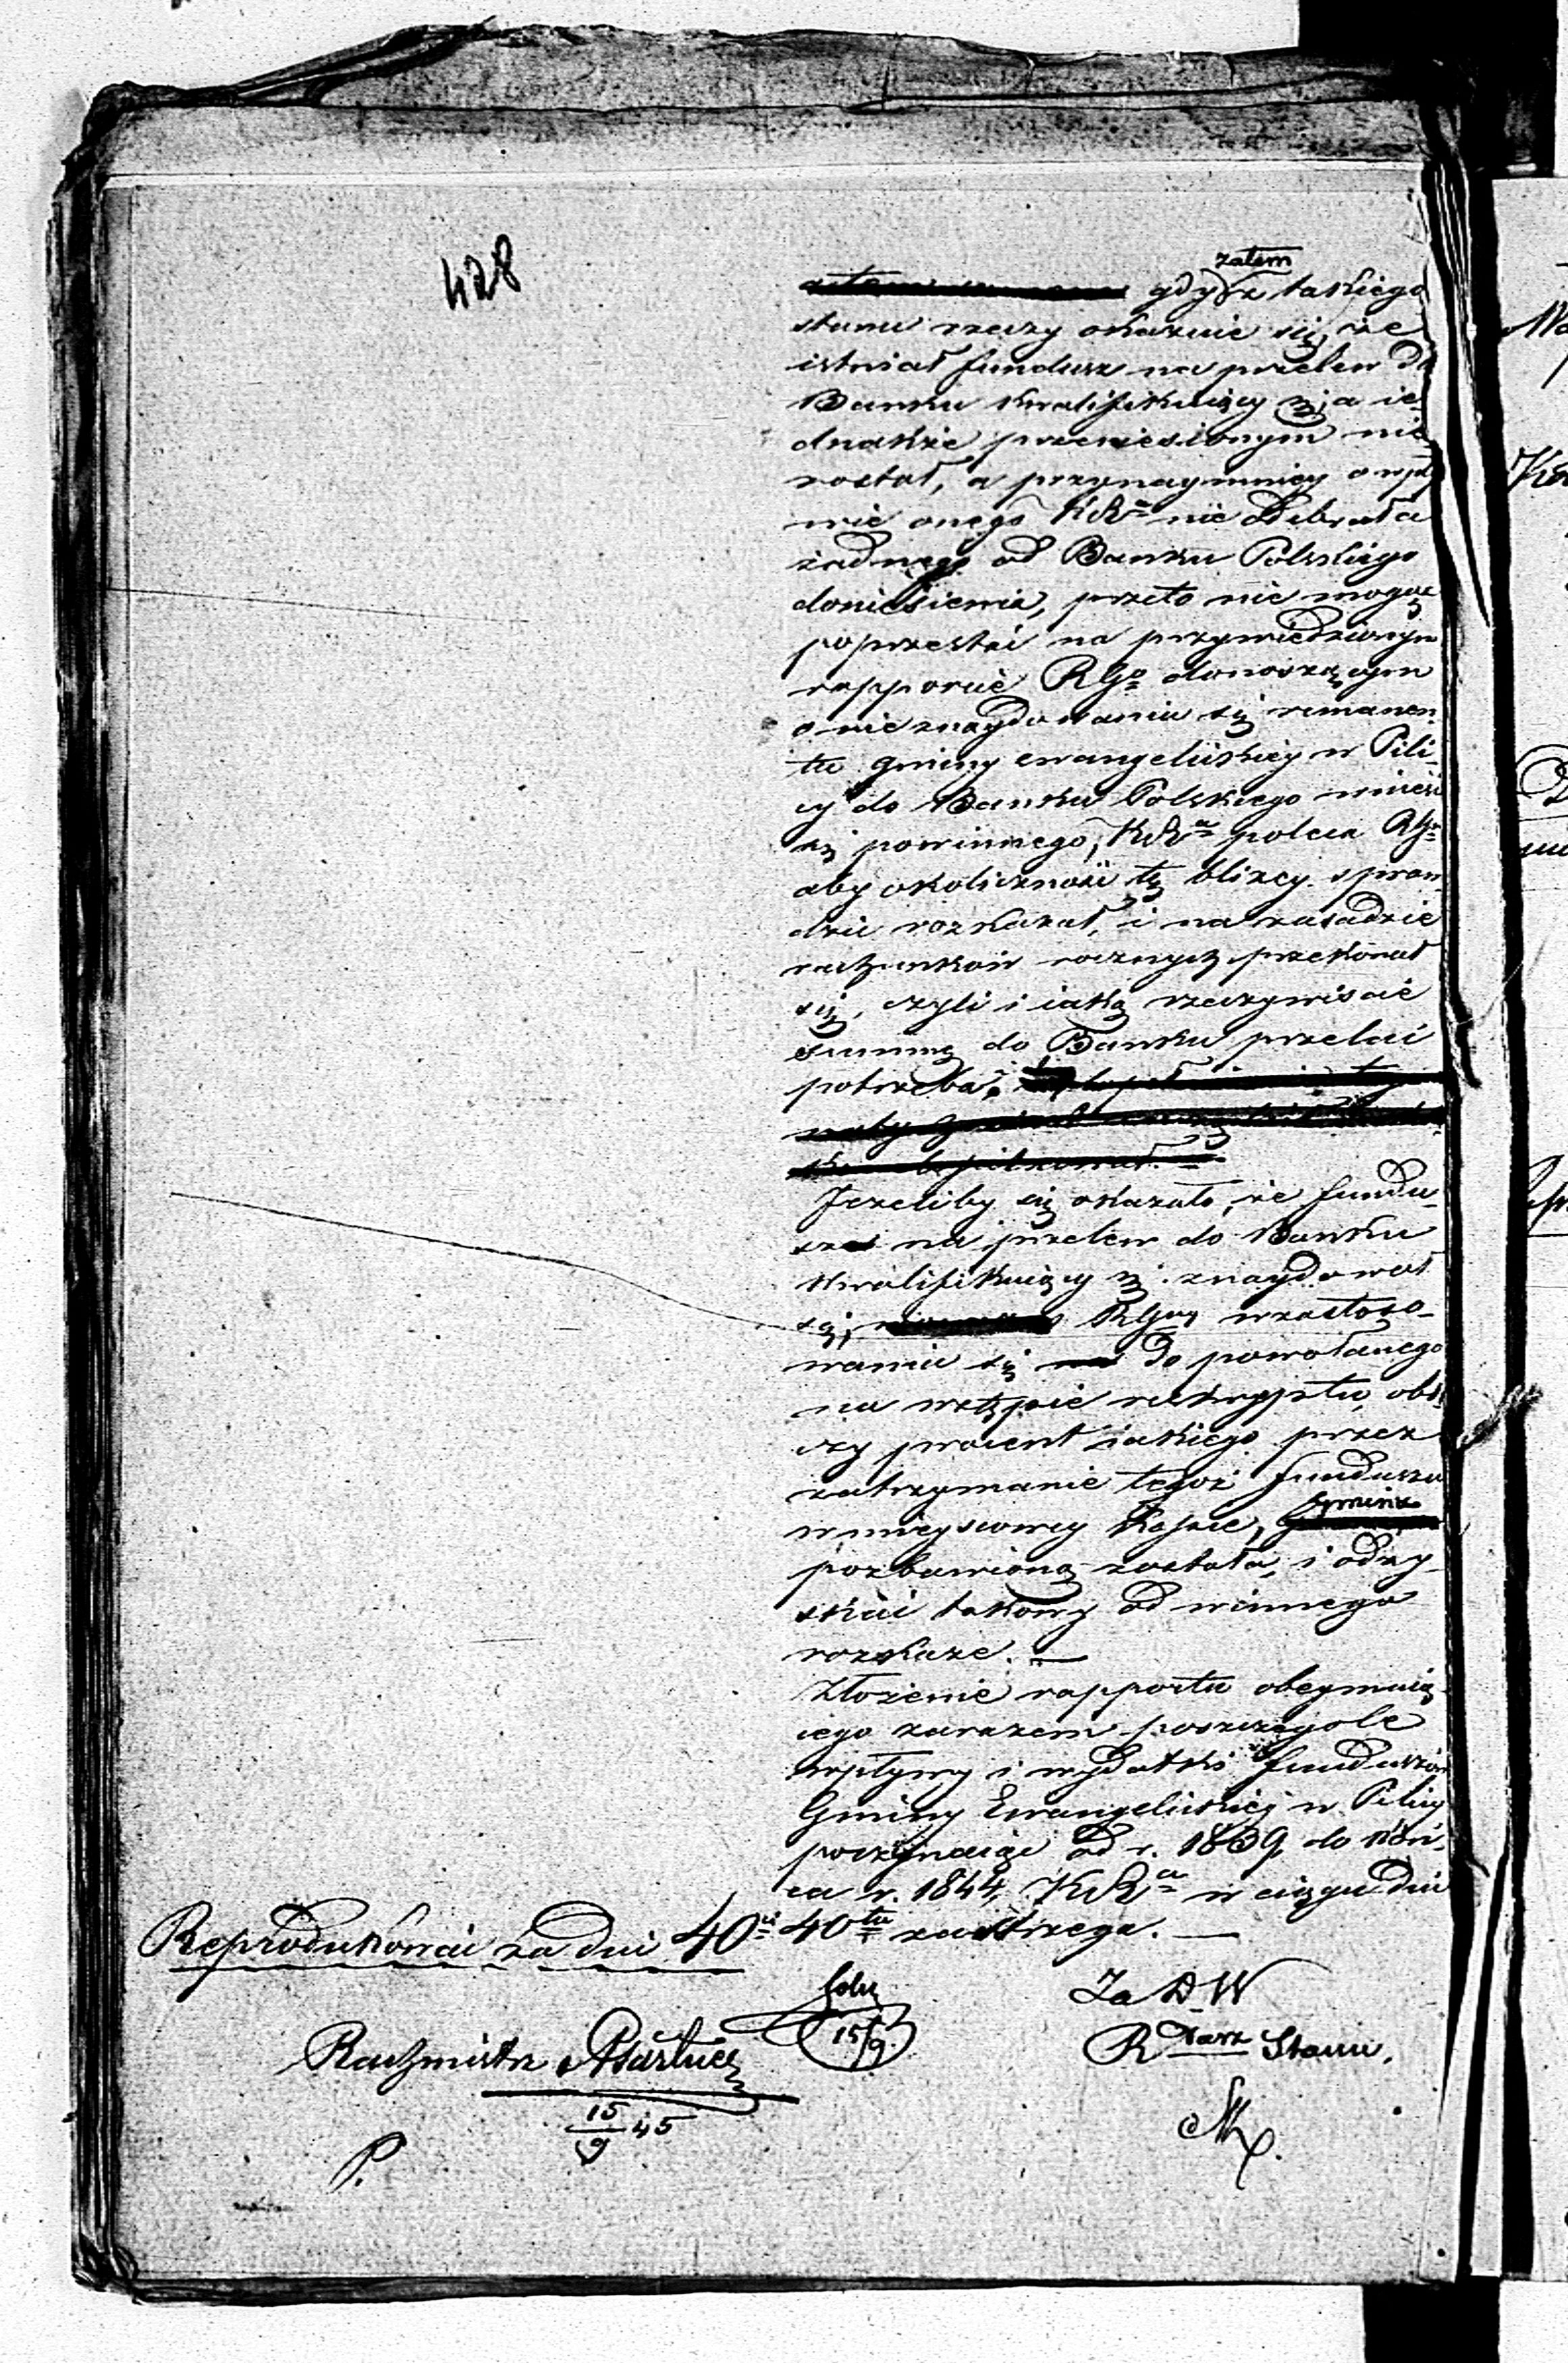 428
zatem
gdy z takiego
stanu rzeczy okazuie się, że
istniał fundusz na przelew do
Banku kwalifikuiący się, a ie-
dnakże przeniesionym nie
został, a przynaymniey o wpły
wie onego KRząd nie odebrała
żadnego od Banku Polskiego
doniesienia, przeto nie mogąc
poprzestać na przywiedzionym
rapporcie RGo donoszącym
o nie znaydowaniu się remanen-
tu gminy ewangelickiey w Pili-
cy do Banku Polskiego wnieść
się powinnego, KRa poleca RGo
aby okoliczność tę bliżey spraw-
dzić rozkazał, i na zasadzie
rachunków rocznych przekonał
się, czyli i iaką rzeczywiście
summę do Banku przelać
potrzeba,
Jeżeliby się okazało, że fundu-
sz na przelew do Banku
kwalifikuiący się znaydował
się, RGny w zastoso-
waniu się do powołanego
na wstępie reskryptu, obli
czy procent iakiego przez
zatrzymanie tegoż funduszu
w mieyscowey Kassie, gmina
pozbawioną została, i odzy-
skać takowy od winnego
rozkaże. —
Złożenie rapportu obeymuią-
cego zarazem poszczególe
wpływy i wydatki funduszów
Gminy Ewangelickiey w Pilicy
poczynaiąc od r. 1839 do koń-
ca r. 1844, KRa w ciągu dni
40tu zastrzega. —
Reprodukować za dni 40ci
15/9
Za D W
R Tarz Stanu.
Rachmistrz
15/9 45
P.